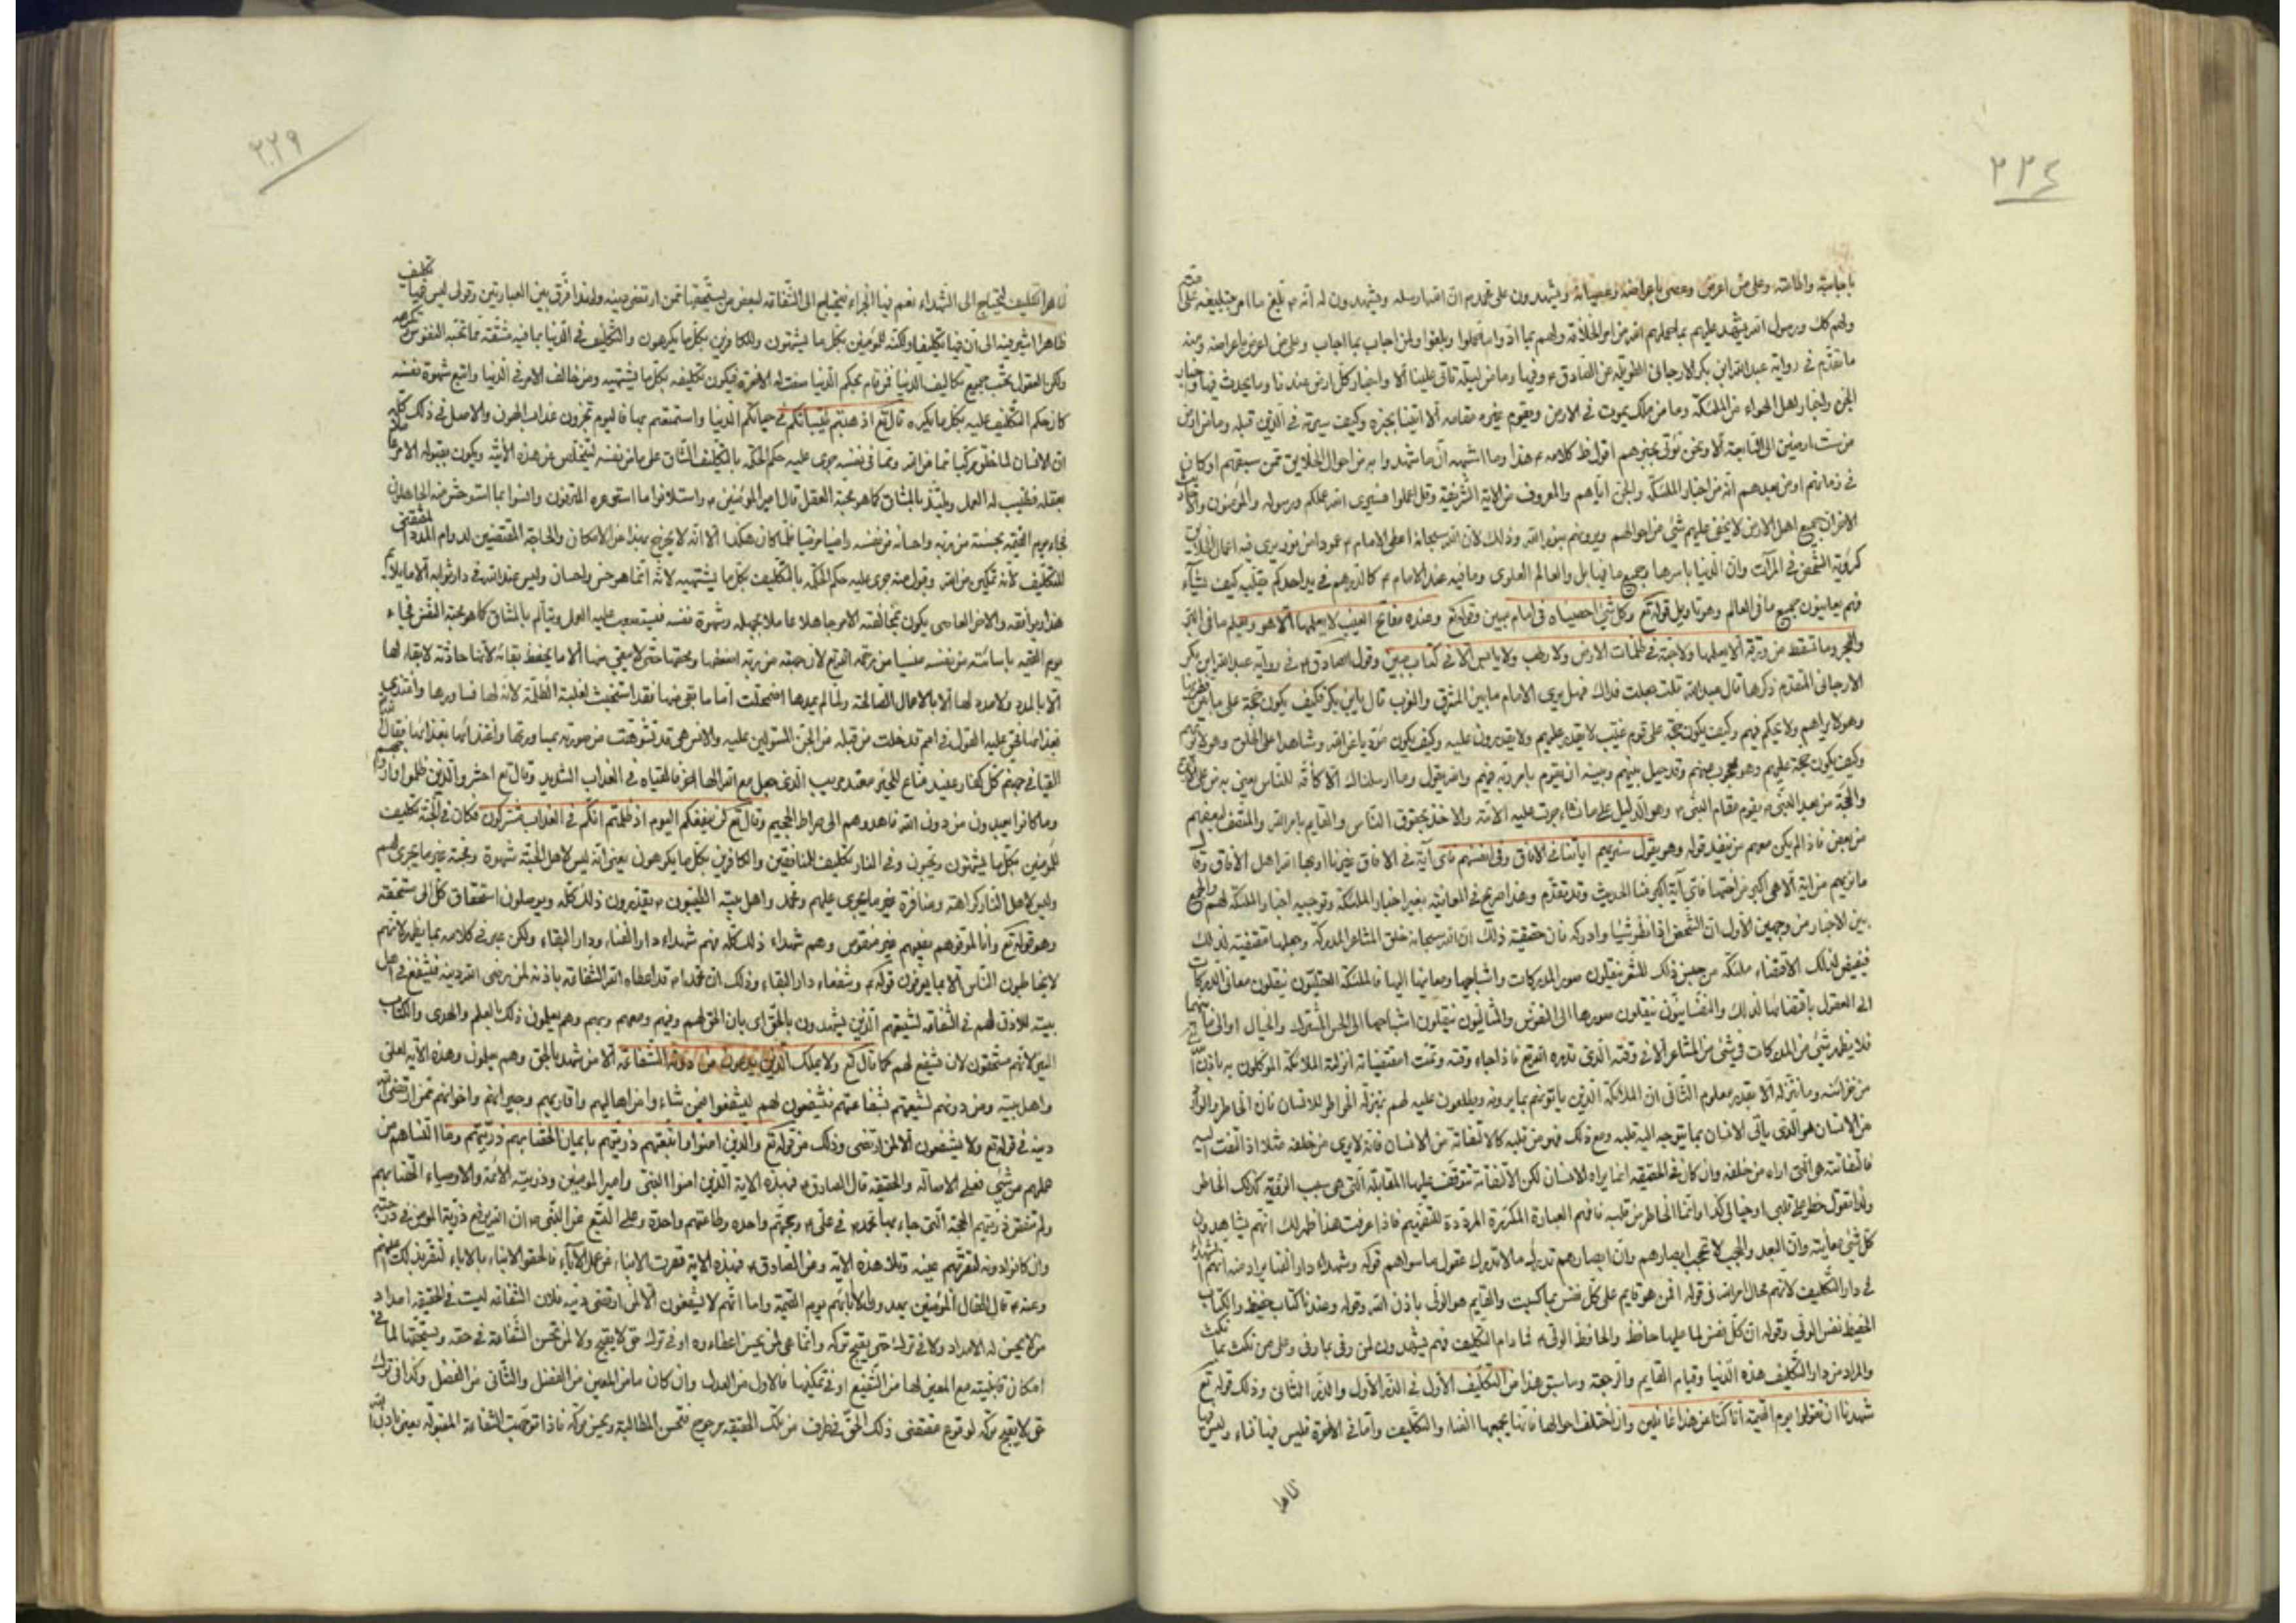 ٢٢٤
باجابته والطاعته وعلى من اعرض وعصى باعراضه وعصيانه ويشهدون على محمد ان الله ارسله ويشهدون له انه بلغ ما امر بتبليغه
ولهم كك ورسول الله يشهد عليهم بما حملهم الله من امر الخلافة ولهم بما ادوا ما حملوا وبلغوا ولمن اجاب بما اجاب وعلى من اعرض باعراضه وعنه
ما تقدم في رواية عبد الله ابن بكر الارجاني الطويلة عن الصادق وفيها وما من ليلة تأتي علينا الا واخبار كل ارض عندنا وما يحدث فيها واخبار
الجن واخبار اهل الهواء من الملئكة وما من ملك يموت في الارض ويقوم غيره مقامه الا اتينا بخبره وكيف سيرته في الذين قبله وما من ارض
من ست ارضين الى السابعة الا ونحن نؤتى بخبرهم اقول ظ كلامه هذا وما اشبهه ان ما شهدوا به من احوال الخلايق ممن سبقهم او كان
في زمانهم او من بعدهم انه من اخبار الملئكة والجن اياهم والمعروف من الاية الشريفة وقل اعملوا فسيرى الله عملكم ورسوله والمؤمنون
جميع اهل الارض لا يخفى عليهم شئ من احوالهم ويرونهم بنور الله وذلك لان الله سبحانه اعطى الامام عمودا من نور يرى فيه اعمال الخلائق
كرؤية الشخص في المرآت وان الدنيا باسرها وجميع ما فيها بل والعالم العلوى وما فيه عند الامام كالدرهم في يد احدكم يقلبه كيف يشآء
فهم يعاينون جميع ما في العالم وهو تاويل قوله تع وكل شئ احصيناه في امام مبين وقوله تع وعنده مفاتح الغيب لا يعلمها الا هو ويعلم ما في البر
والبحر وما تسقط من ورقة الا يعلمها ولا حبة في ظلمات الارض ولا رطب ولا يابس الا في كتاب مبين وقول الصادق في رواية عبد الله ابن بكر
الارجاني المتقدم ذكرها قال عبد الله قلت جعلت فداك فهل يرى الامام ما بين المشرق والمغرب قال يابن بكر فكيف يكون حجة على ما بين
وهو لا يراهم ولا يحكم فيهم وكيف يكون حجة على قوم غيب لا يقدر عليهم ولا يقدرون عليه وكيف يكون مؤديا عن الله وشاهدا على الخلق وهو لا يريهم
وكيف يكون حجة عليهم وهو محجوب عنهم وقد حيل بينهم وبينه ان يقوم بامر ربه فيهم والله يقول وما ارسلناك الا كافة للناس يعني به من على الارض
والحجة من بعد النبي يقوم مقام النبي وهو الدليل على ما تشاجرت عليه الامة والاخذ بحقوق الناس والقايم بامر الله والمنصف لبعضهم
من بعض فاذا لم يكن معهم من ينفذ قوله وهو يقول سنريهم اياتنا في الافاق وفي انفسهم فاى آية في الافاق غيرنا اراها الله اهل الافاق وقال
ما نريهم من اية الا هي اكبر من اختها فاى آية اكبر منا الحديث وقد تقدم وهذا صريح في المعاينة بغير اخبار الملئكة وتوجيه اخبار الملئكة لهم والجمع
بين الاخبار من وجهين الاول ان الشخص اذا نظر شيئا وادركه فان حقيقة ذلك ان الله سبحانه خلق المشاعر المدركة وجعلها مقتضية لذلك
فيفيض لذلك الاقتضاء ملئكة من جنس ذلك المشعر ينقلون صور المدركات واشباحها ومعانيها اليها فالملئكة العقليون ينقلون معاني المدركات
الى العقول باقتضائها لذلك والنفسانيون ينقلون صورها الى النفوس والمثاليون ينقلون اشباحها الى الحس المشترك والخيال
فلا يظهر شئ من المدركات في شئ من المشاعر الا في وقته الذي قدره الله تع فاذا جاء وقته وتمت مقتضياته انزلته الملائكة الموكلون به باذن الله
من خزائنه وما ننزله الا بقدر معلوم الثاني ان الملائكة الذين ياتونهم بما يرونه ويطلعون عليه لهم بمنزلة الخواطر للانسان فان الخاطر الوارد
من الانسان هو الذي ياتي الانسان بما يتوجه اليه قلبه ومع ذلك فهو من قلبه كالالتفاتة من الانسان فانه لا يرى من خلفه مثلا اذا التفت اليه
فالتفاتته هي التي اراه من خلفه وان كان في الحقيقة انما يراه الانسان لكن الالتفاتة تتوقف عليها المقابلة التي هي سبب الرؤية كذلك الخاطر
ولذا تقول خطر على قلبي او خيالي كذا وانما الخاطر من قلبه فافهم العبارة المكررة المرددة للتفهيم فاذا عرفت هذا ظهر لك انهم يشاهدون
كل شئ معاينة وان البعد والحجب لا تحجب ابصارهم وان ابصارهم تدرك ما لا تدرك عقول ما سواهم قوله وشهداء دار الفناء يراد منه انهم الشهداء
في دار التكليف لانهم محال امر الله في قوله افمن هو قايم على كل نفس بما كسبت والقايم هو الولي باذن الله وقوله وعندنا كتاب حفيظ والكتاب
الحفيظ نفس الولي وقوله ان كل نفس لما عليها حافظ والحافظ الولي فما دام التكليف فهم يشهدون لمن وفى بما وفى وعلى من نكث بما نكث
والمراد من دار التكليف هذه الدنيا وقيام القايم والرجعة وما سبق هذا من التكليف الاول في الذر الاول والذر الثاني وذلك قوله تع
شهدنا ان تقولوا يوم القيمة انا كنا عن هذا غافلين وان اختلف احوالها فانها يجمعها الفناء والتكليف واما في الاخرة فليس فيها فناء وليس فيها
ظاهرا
٢٢٩
ظاهرا تكليف ليحتاج الى الشهداء نعم فيها الجزاء فيحتاج الى الشفاعة لبعض من يستحقها ممن ارتضى دينه ولهذا فرق بين العبارتين وقولي ليس فيها تكليف
ظاهرا اشير فيه الى ان فيها تكليفا ولكنه للمؤمنين بكل ما يشتهون وللكافرين بكل ما يكرهون والتكليف في الدنيا بما فيه مشقة مما تحبه النفوس وتكرهه
ولكن العقول يحسب جميع تكاليف الدنيا فمن قام بحكم الدنيا صفت له الاخرة فيكون تكليفه بكل ما يشتهيه ومن خالف الامر في الدنيا واتبع شهوة نفسه
كان حكم التكليف عليه بكل ما يكره قال تع اذهبتم طيباتكم في حياتكم الدنيا واستمتعتم بها فاليوم تجزون عذاب الهون والاصل في ذلك كله
ان الانسان لما خلق مركبا مما من الله ومما في نفسه جرى عليه حكم الحكمة بالتكليف الشاق على ما من نفسه ليتخلص عن هذه الانية ويكون بقبوله الامر
بعقله فيطيب له العمل ويلتذ بالمشاق كما هو محبة العقل قال امير المؤمنين واستلانوا ما استوعره المترفون وانسوا بما استوحش منه الجاهلون
فجاء يوم القيمة بحسنة من ربه واحسانه من نفسه راضيا مرضيا فلما كان هكذا الا انه لا يخرج بهذا عن الامكان والحاجة المقتضيين لدوام المدد المقتضى
للتكليف لانه تمكين من الله وقبول منه جرى عليه حكم الحكمة بالتكليف بكل ما يشتهيه لانه انما هو حسن واحسان وليس عند الله في دار ثوابه الا ما يلايم
هذا ويوافقه والاخر العاصى يكون بمخالفته الامر جاهلا عاملا بجهله وشهوة نفسه فيصعب عليه العمل ويتألم بالمشاق كما هو محبة النفس فجاء
يوم القيمة باسائته من نفسه
الا بالمدد ولا مدد لها الا بالاعمال الصالحة ولما لم يمدها اضمحلت
القيا في جهنم كل كفار عنيد مناع للخير معتد مريب الذي جعل مع الله الها اخر فالقياه في العذاب الشديد وقال تع احشروا الذين ظلموا وازواجهم
وما كانوا يعبدون من دون الله فاهدوهم الى صراط الجحيم وقال تع لن ينفعكم اليوم اذ ظلمتم انكم في العذاب مشتركون فكان في الجنة تكليف
للمؤمنين بكل ما يشتهون ويحبون وفي النار تكليف للمنافقين والكافرين بكل ما يكرهون يعني انه ليس لاهل الجنة شهوة ومحبة غير ما يجرى لهم
وليس لاهل النار كراهة ومنافرة غير ما يجرى عليهم ومحمد واهل بيته الطيبون يقدرون ذلك كله ويوصلون استحقاق كل الى مستحقه
وهو قوله تع وانا لموفوهم نصيبهم غير منقوص وهم شهداء ذلك كله فهم شهداء دار الفناء ودار البقاء ولكن عبر في كلامه بما يظهر لانهم
لا يخاطبون الناس الا بما يعرفون قوله وشفعاء دار البقاء وذلك ان محمدا قد اعطاه الله الشفاعة باذنه لمن رضى الله دينه فيشفع في اهل
بيته للاذن لهم في الشفاعة لشيعتهم الذين يشهدون بالحق اى بان الحق لهم وفيهم ومعهم وبهم وهم يعلمون ذلك بالعلم والهدى والكتاب
المبين لانهم مستحقون لان يشفع لهم كما قال تع ولا يملك الذين يدعون من دونه الشفاعة الا من شهد بالحق وهم يعلمون وهذه الآية
واهل بيته ومن دونهم لشيعتهم بشفاعتهم فيشفعون لهم ليشفعوا فيمن شاءوا من اهاليهم واقاربهم وجيرانهم واخوانهم ممن ارتضى الله
دينه في قوله تع ولا يشفعون الا لمن ارتضى وذلك من قوله تع والذين امنوا واتبعتهم ذريتهم بايمان الحقنا بهم ذريتهم وما التناهم من
عملهم من شئ فعلى الاصالة والحقيقة قال الصادق في هذه الاية الذين امنوا النبي وامير المؤمنين وذريته الائمة والاوصياء الحقنا بهم
ولم تنقص ذريتهم الحجة التي جاء بها محمد في على وحجتهم واحدة وطاعتهم واحدة وعلى التبع عن النبي ان الله يرفع ذرية المؤمن في درجته
وان كانوا دونه لتقر بهم عينه وتلا هذه الاية وعن الصادق في هذه الاية قصرت الابناء عن عمل الآباء فالحقوا الابناء بالاباء لتقر بذلك اعينهم
وعنه قال اطفال المؤمنين يهدون الى ابائهم يوم القيمة واما انهم لا يشفعون الا لمن ارتضى دينه فلان الشفاعة ليست في الحقيقة امداد
من لا يحسن له الامداد ولا في ترك حق يقبح تركه وانما هي لمن يحسن اعطاءه او في ترك حق لا يقبح ولا لمن تحسن الشفاعة في حقه ويستحقها لما في
امكان قابليته مع المعين لها من الشفيع او في تمكينها فالاول من العدل وان كان ما من المعين من الفضل والثاني من الفضل وكذا في ترك
حق لا يقبح تركه لوقوع مقتضى ذلك الحق في طرف من تلك الحقيقة مرجوح فتحسن المطالبة ويحسن تركه فاذا توجهت الشفاعة المقبولة يعني باذن الله